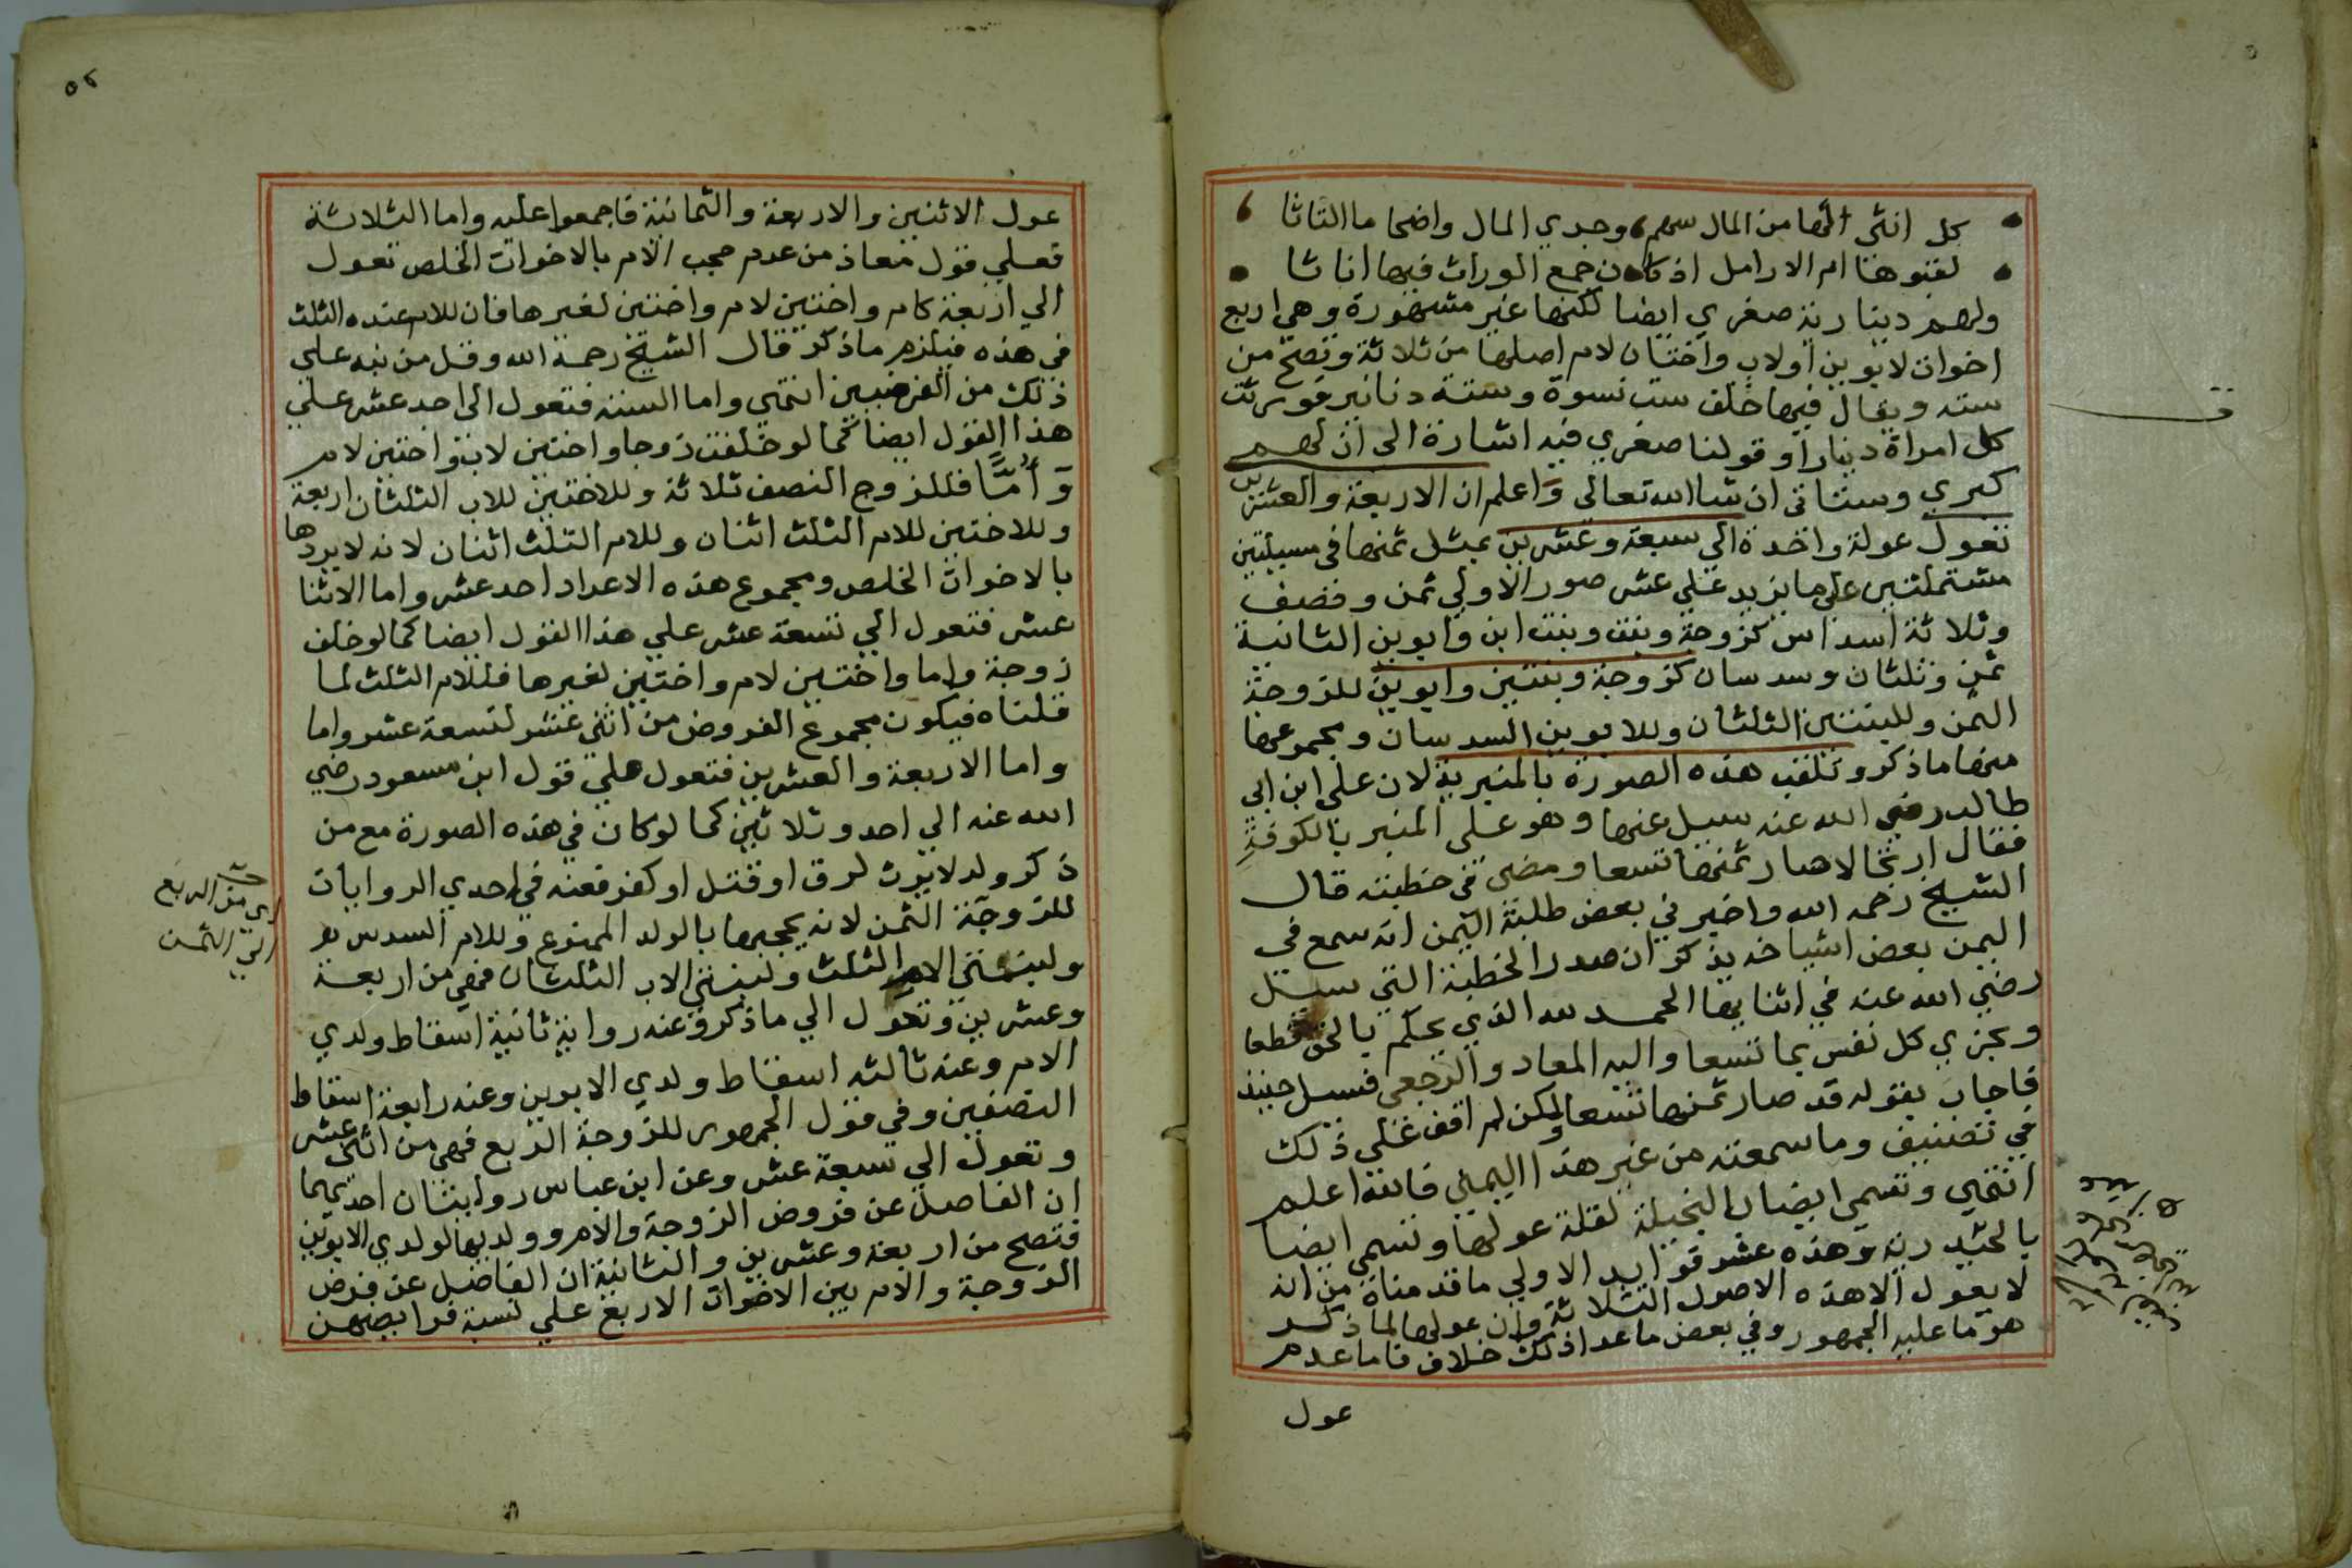 كل انثى الها من المال سهم وجدي المال واضحا ما التاثا
لقبوها ام الارامل اذ كان جمع الوراث فيها اناثا
ولهم دينارية صغري ايضا لكنها غير مشهورة وهي اربع
اخوات لابوين او لاب واختان لام اصلها من ثلاثة وتصح من
سته ويقال فيها خلف ست نسوة وستة دنانير فورثت
كل امراة دينارا وقولنا صغري فيه اشارة الى ان لهم
كبري وستاتى ان شا الله تعالى واعلم ان الاربعة والعشرين
تعول عولة واحدة الي سبعة وعشرين بمثل ثمنها في مسيلتين
مشتملتين على ما يزيد علي عشر صور الاولي ثمن ونصف
وثلاثة اسداس كزوجة وبنت وبنت ابن وابوين الثانية
ثمن وثلثان وسدسان كزوجة وبنتين وابوين للزوجة
الثمن وللبنتين الثلثان وللابوين السدسان ومجموعها
منها ما ذكر وتلقب هذه الصورة بالمنبرية لان علي ابن ابي
طالب رضي الله عنه سيل عنها وهو على المنبر بالكوفة
فقال ارتجالا صار ثمنها تسعا ومضى في خطبته قال
الشيخ رحمه الله واخبرني بعض طلبة اليمن انه سمع في
اليمن بعض اشياخه يذكر ان صدر الخطبة التي سيل
رضي الله عنه في اثنايها الحمد لله الذي يحكم بالحق قطعا
ويجزي كل نفس بما تسعا واليه المعاد والرجعى فسيل حينيذ
فاجاب بقوله قد صار ثمنها تسعا ولكن لم اقف علي ذلك
في تصنيف وما سمعته من غير هذا اليمني فالله اعلم
انتهي وتسمي ايضا البخيلة لقلة عولها وتسمي ايضا
بالحيدرية وهذه عشر فوايد الاولي ما قدمناه من انه
لا يعول الا هذه الاصول الثلاثة وان عولها لما ذكر
هو ما عليه الجمهور وفي بعض ما عدا ذلك خلاف فاما عدم
عول
٥٢
عول الاثنين والاربعة والثمانية فاجمعوا عليه واما الثلاثة
فعلي قول معاذ من عدم حجب الام بالاخوات الخلص تعول
الي اربعة كام واختين لام واختين لغيرها فان للام عنده الثلث
في هذه فيلزم ما ذكر قال الشيخ رحمة الله وقل من نبه على
ذلك من الفرضيين انتهي واما الستة فتعول الى احد عشر علي
هذا القول ايضا كما لو خلفت زوجا واختين لاب واختين لام
وأمَّا فللزوج النصف ثلاثة وللاختين للاب الثلثان اربعة
وللاختين للام الثلث اثنان وللام الثلث اثنان لانه لا يردها
بالاخوات الخلص ومجموع هذه الاعداد احد عشر واما الاثنا
عشر فتعول الي تسعة عشر علي هذا القول ايضا كما لو خلف
زوجة واما واختين لام واختين لغيرها فللام الثلث لما
قلناه فيكون مجموع الفروض من اثني عشر لتسعة عشر واما
واما الاربعة والعشرين فتعول علي قول ابن مسعود رضي
الله عنه الي احد وثلاثين كما لو كان في هذه الصورة مع من
ذكر ولد لا يرث لرق او قتل او كفر فعنه في احدي الروايات
للزوجة الثمن لانه يحجبها بالولد الممنوع وللام السدس
الام الثلث الاب الثلثان فهي من اربعة
وعشرين وتعول الي ما ذكر وعنه رواية ثانية اسقاط ولدي
الام وعنه ثالثه اسقاط ولدي الابوين وعنه رابعة اسقاط
الصنفين وفي قول الجمهور للزوجة الربع فهي من اثنى عشر
وتعول الي سبعة عشر وعن ابن عباس روايتان احديهما
ان الفاضل عن فروض الزوجة والام وولديها لولدي الابوين
فتصح من اربعة وعشرين والثانية ان الفاضل عن فرض
الزوجة والام بين الاخوات الاربع علي نسبة فرايضهن
من الربع
الي الثمن